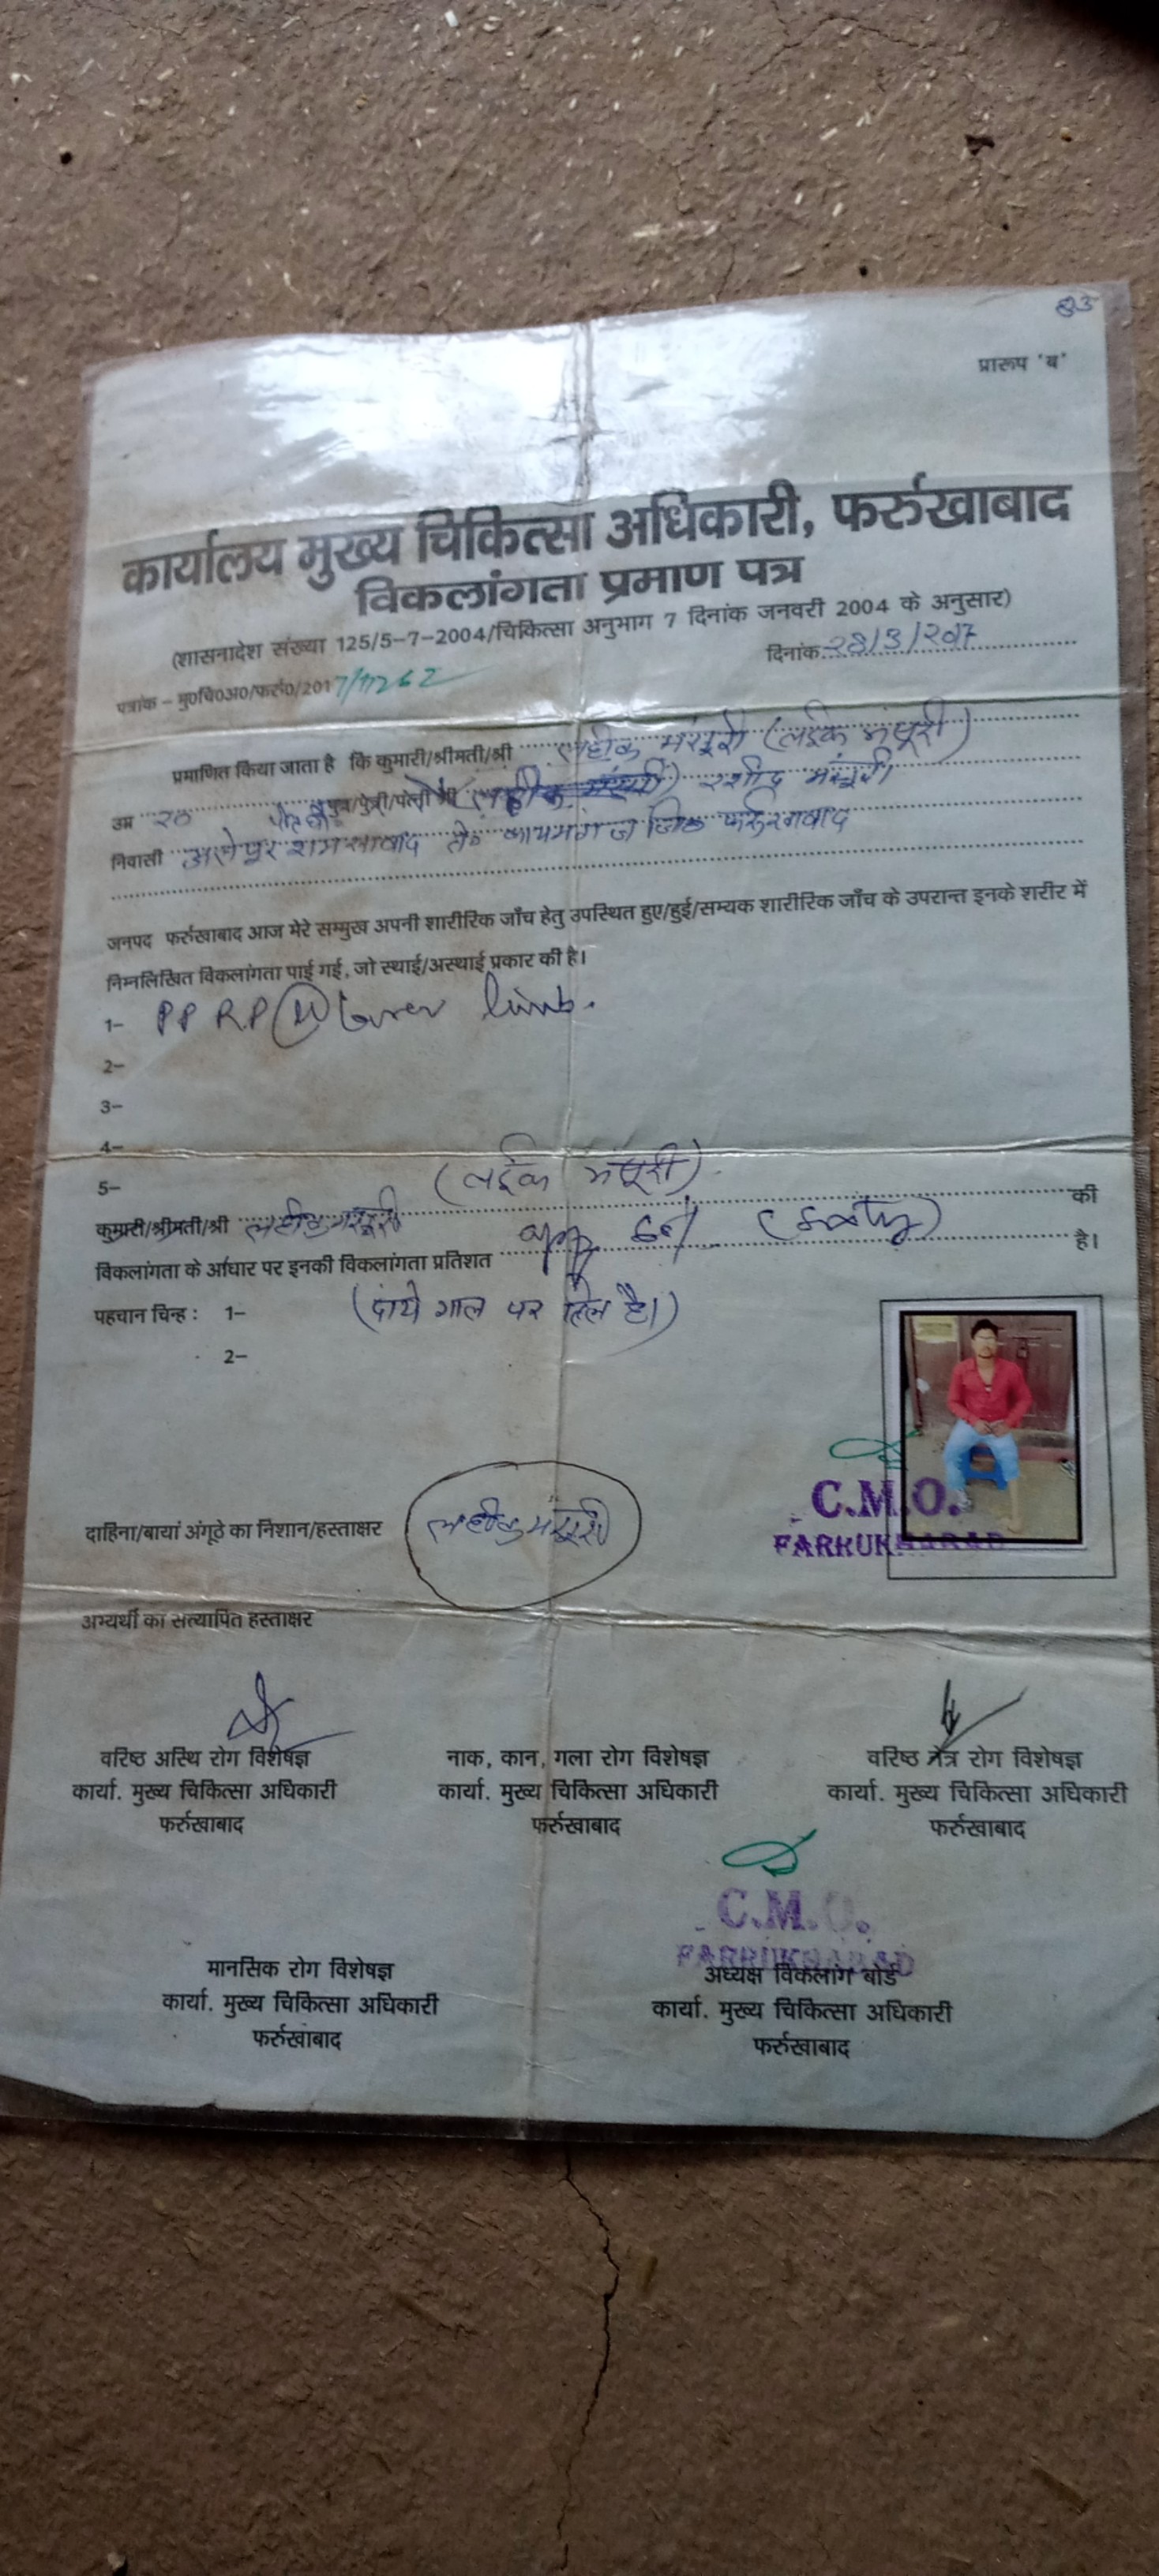 प्रारूप 'ब'
कार्यालय मुख्य चिकित्सा अधिकारी, फर्रुखाबाद
विकलांगता प्रमाण पत्र
(शासनादेश संख्या 125/5-7-2004/चिकित्सा अनुभाग 7 दिनांक जनवरी 2004 के अनुसार)
दिनांक 28/3/2017
पत्रांक – मु0चि0अ0/फर्रु0/2017
प्रमाणित किया जाता है कि कुमारी/श्रीमती/श्री लहीक मंसूरी (लईक मंसूरी)
उम्र 20 पुत्र/पुत्री/पत्नी श्री रशीद मंसूरी
निवासी अलेपुर शमसाबाद त0 कायमगंज जि0 फर्रुखाबाद
जनपद फर्रुखाबाद आज मेरे सम्मुख अपनी शारीरिक जाँच हेतु उपस्थित हुए/हुई/सम्यक शारीरिक जाँच के उपरान्त इनके शरीर में
निम्नलिखित विकलांगता पाई गई, जो स्थाई/अस्थाई प्रकार की है।
1- PPRP Lower limb.
2-
3-
4-
5-
(लईक मंसूरी)
कुमारी/श्रीमती/श्री लहीक मंसूरी की
विकलांगता के आधार पर इनकी विकलांगता प्रतिशत है।
पहचान चिन्ह : 1- (दांये गाल पर तिल है।)
2-
C.M.O.
FARRUKHABAD
दाहिना/बायां अंगूठे का निशान/हस्ताक्षर लहीक मंसूरी
अभ्यर्थी का सत्यापित हस्ताक्षर
वरिष्ठ अस्थि रोग विशेषज्ञ नाक, कान, गला रोग विशेषज्ञ वरिष्ठ नेत्र रोग विशेषज्ञ
कार्या. मुख्य चिकित्सा अधिकारी कार्या. मुख्य चिकित्सा अधिकारी कार्या. मुख्य चिकित्सा अधिकारी
फर्रुखाबाद फर्रुखाबाद फर्रुखाबाद
C.M.O.
FARRUKHABAD
मानसिक रोग विशेषज्ञ अध्यक्ष विकलांग बोर्ड
कार्या. मुख्य चिकित्सा अधिकारी कार्या. मुख्य चिकित्सा अधिकारी
फर्रुखाबाद फर्रुखाबाद